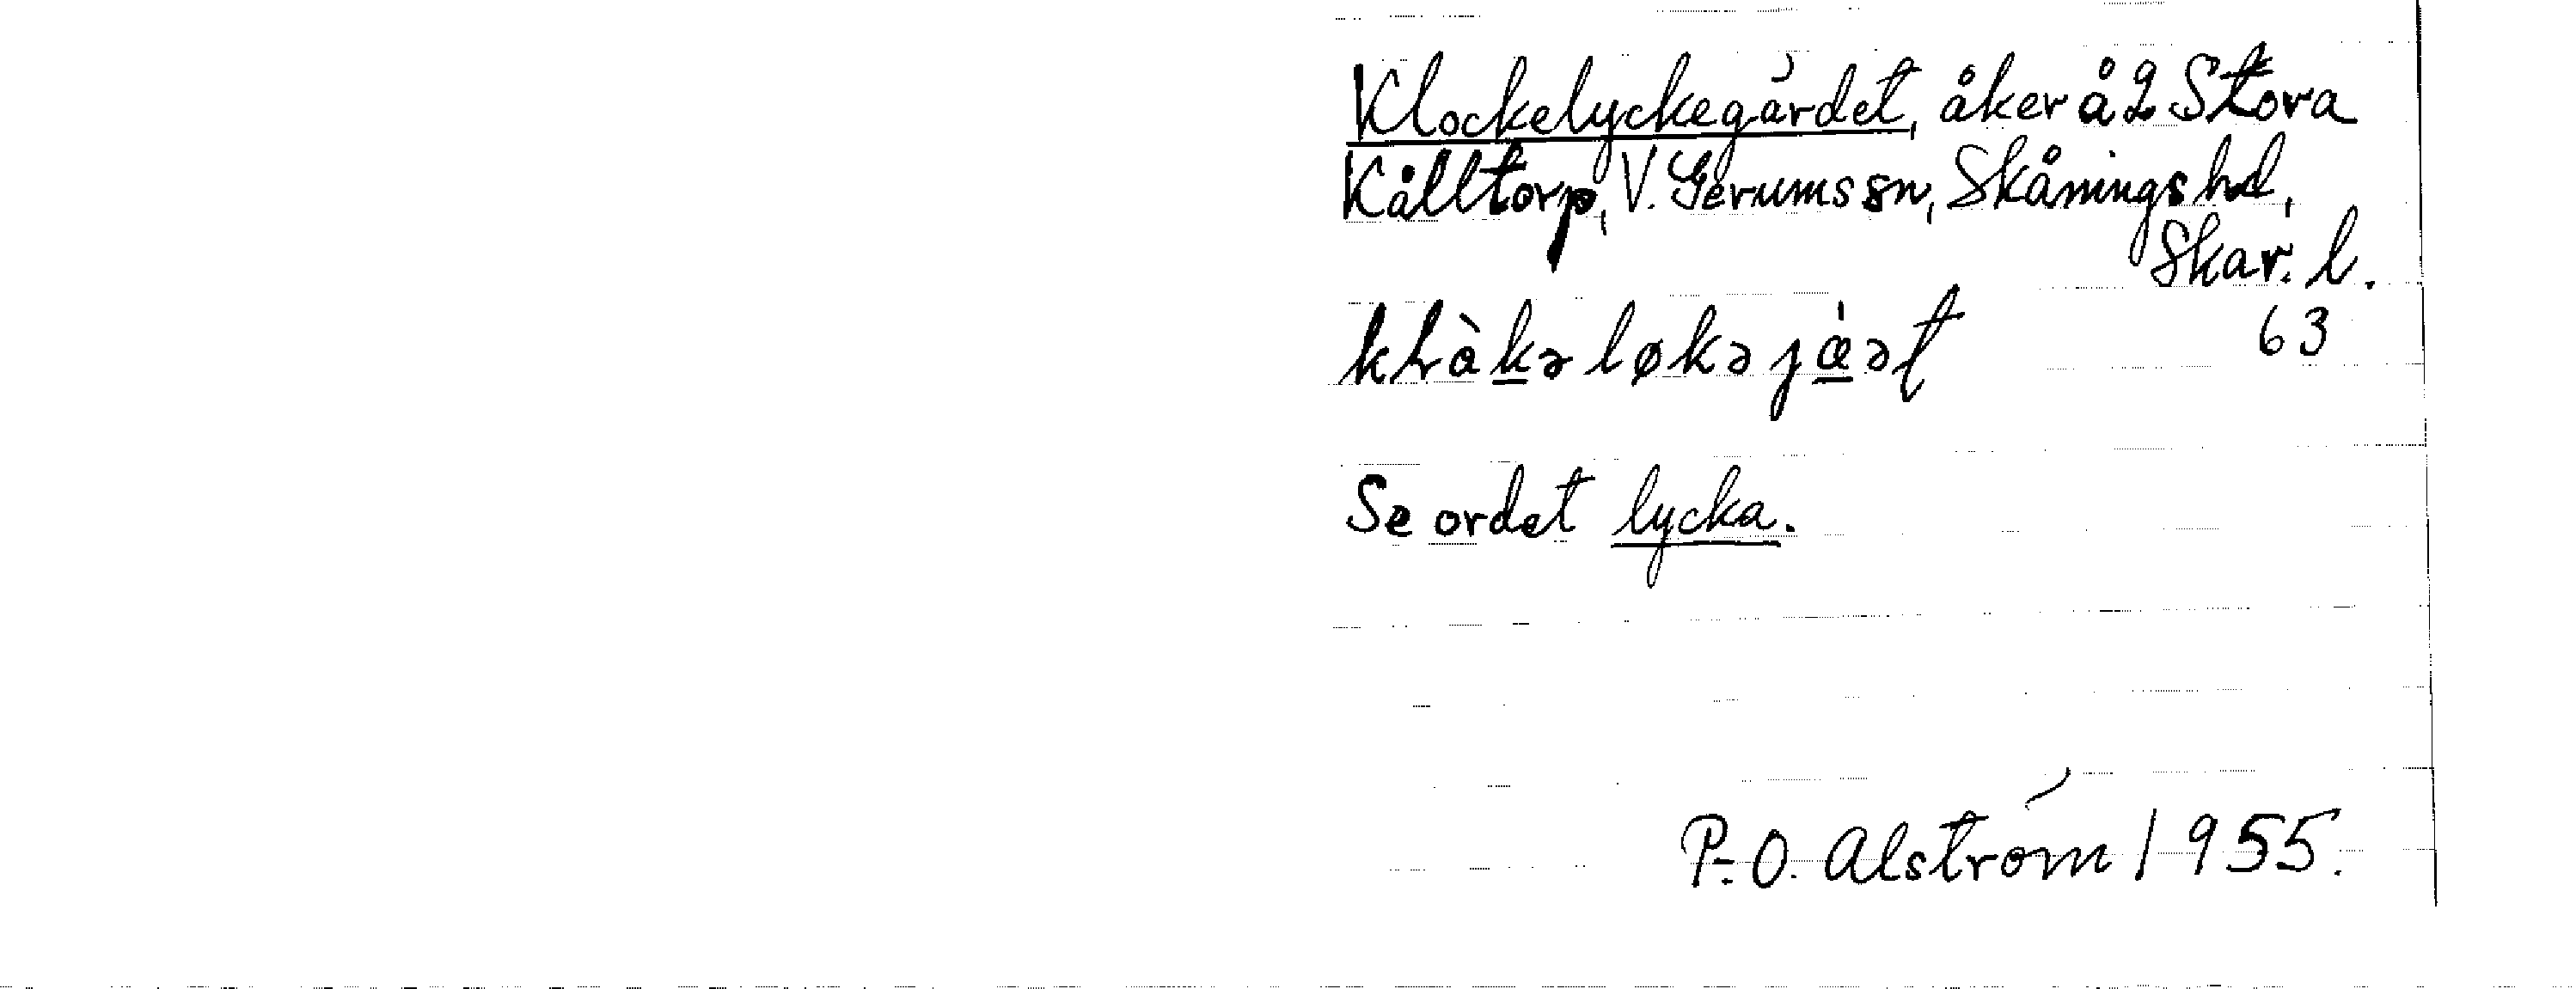 Klockelyckegärdet, åker å 2 Stora
Kålltorp, V. Gerums sn, Skånings hd,
Skar. l.
63
Se ordet lycka.
P.-O. Alström 1955.